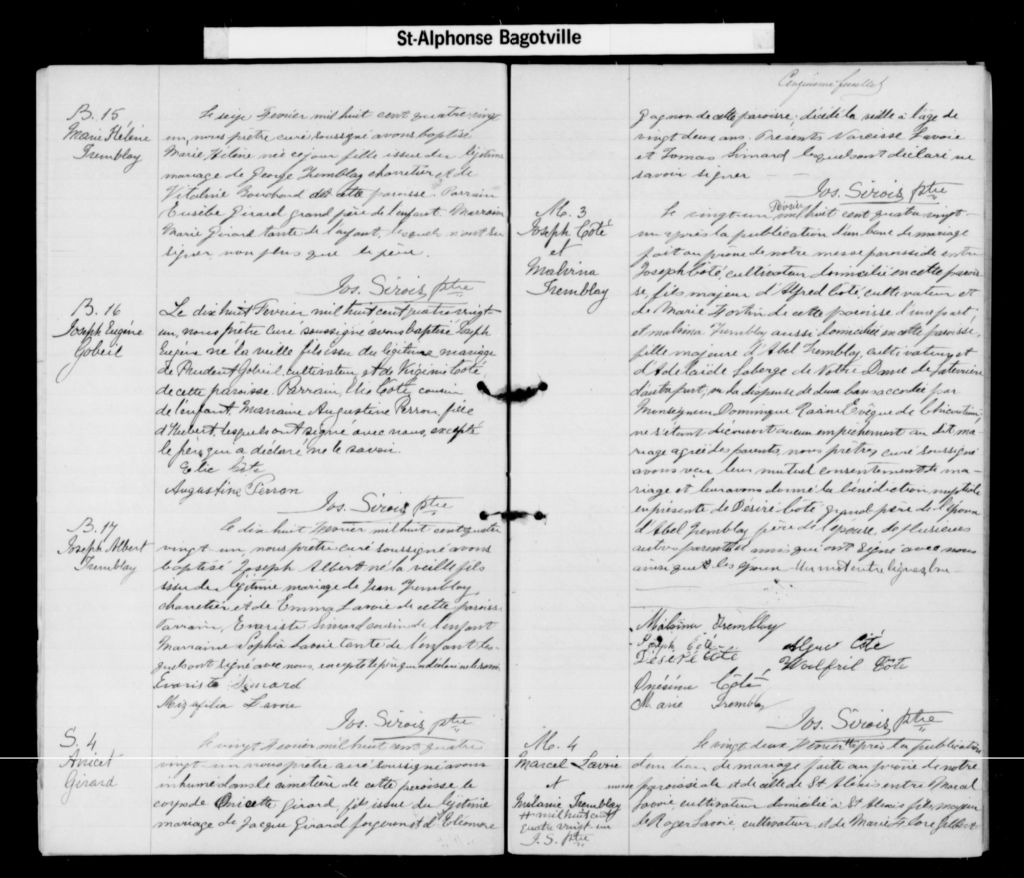 St-Alphonse Bagotville
B. 15
Marie Hélène
Tremblay
Le seize Fevrier mil huit cent quatre vingt
un, nous prêtre curé soussigné avons baptisé
Marie Hélène née ce jour fille issue du légitime
mariage de George Tremblay charretier et de
Vitaline Bouchard de cette paroisse. Parrain
Eusèbe Girard grand père de l'enfant. Marraine
Marie Girard tante de l'enfant, lesquels n'ont su
signer non plus que le père.
Jos. Sirois, ptre
B. 16
Joseph Eugène
Gobeil
Le dix huit Fevrier mil huit cent quatre vingt
un, nous prêtre curé soussigné avons baptisé Joseph
Eugène né la veille fils issu du légitime mariage
de Prudent Gobeil, cultivateur et de Virginie Coté
de cette paroisse. Parrain, Elie Coté cousin
de l'enfant, Marraine Augustine Perron fille
d'Hubert lesquels ont signé avec nous, excepté
le père qui a déclaré ne le savoir.
Elie Coté
Augustine Perron
Jos. Sirois ptre
B. 17
Joseph Albert
Tremblay
Le dix huit Fevrier mil huit cent quatre
vingt un, nous prêtre curé soussigné avons
baptisé Joseph Albert né la veille fils
issu du légitime mariage de Jean Tremblay
charretier et de Emma Lavoie de cette paroisse
Parrain, Evariste Simard cousin de l'enfant
Marraine Sophia Lavoie tante de l'enfant les-
quels ont signé avec nous, excepté le père qui a déclaré ne le savoir
Evariste Simard
Lavoie
Jos. Sirois, ptre
S. 4
Anicet
Girard
Le vingt Fevrier mil huit cent quatre
vingt un nous prêtre curé soussigné avons
inhumé dans le cimetière de cette paroisse le
corps de Girard, fils issue du légitime
mariage de Jacque Girard forgeron et d'Eléonore
Cinquieme feuillet
Gagnon de cette paroisse, décédé la veille à l'age de
vingt deux ans. Présents Narcisse Lavoie
et Tomas Simard lesquels ont déclaré ne
savoir signer
Jos. Sirois, ptre
M. 3
Joseph Coté
et
Malvina
Tremblay
Fevrier
Le vingt un mil huit cent quatre vingt
un après la publication d'un banc de mariage
fait au prône de notre messe paroissiale entre
Joseph Coté, cultivateur domicilié en cette parois-
se, fils majeur d'Alfred Coté, cultivateur et
de Marie Fortin de cette paroisse d'une part,
et Malvina Tremblay aussi domiciliée en cette paroisse,
fille majeure d'Abel Tremblay, cultivateur et
d'Adelaïde Laberge de Notre Dame de Laterrière
d'autre part, vu la dispense de deux bans accordée par
Monseigneur Dominique Racine Evêque de Chicoutimi,
ne s'étant découvert aucun empêchement au dit ma-
riage agréé des parents, nous prêtre, curé soussigné
avons reçu leur mutuel consentement de ma-
riage et leur avons donné la bénédiction nuptiale
en présence de Désiré Coté grand père de l'époux
d'Abel Tremblay père de l'épouse, de plusieurs
autres parents et amis qui ont signé avec nous
ainsi que les époux. Un mot entre lignes, bon
Malvina Tremblay
Joseph Coté
Désiré Coté
Coté
Wilfrid Coté
Onésime Coté
Marie Tremblay
Jos. Sirois, ptre
M. 4
Marcel Lavoie
et
Mélanie Tremblay
# mil huit cent
quatre vingt un
J.S. ptre
Le vingt deux Fevrier # après la publication
d'un banc de mariage faite au prône de notre
messe paroissiale et de celle de St Alexis entre Marcel
Lavoie cultivateur domicilié à St Alexis fils majeur
de Roger Lavoie, cultivateur, et de Marie Flore Gilbert